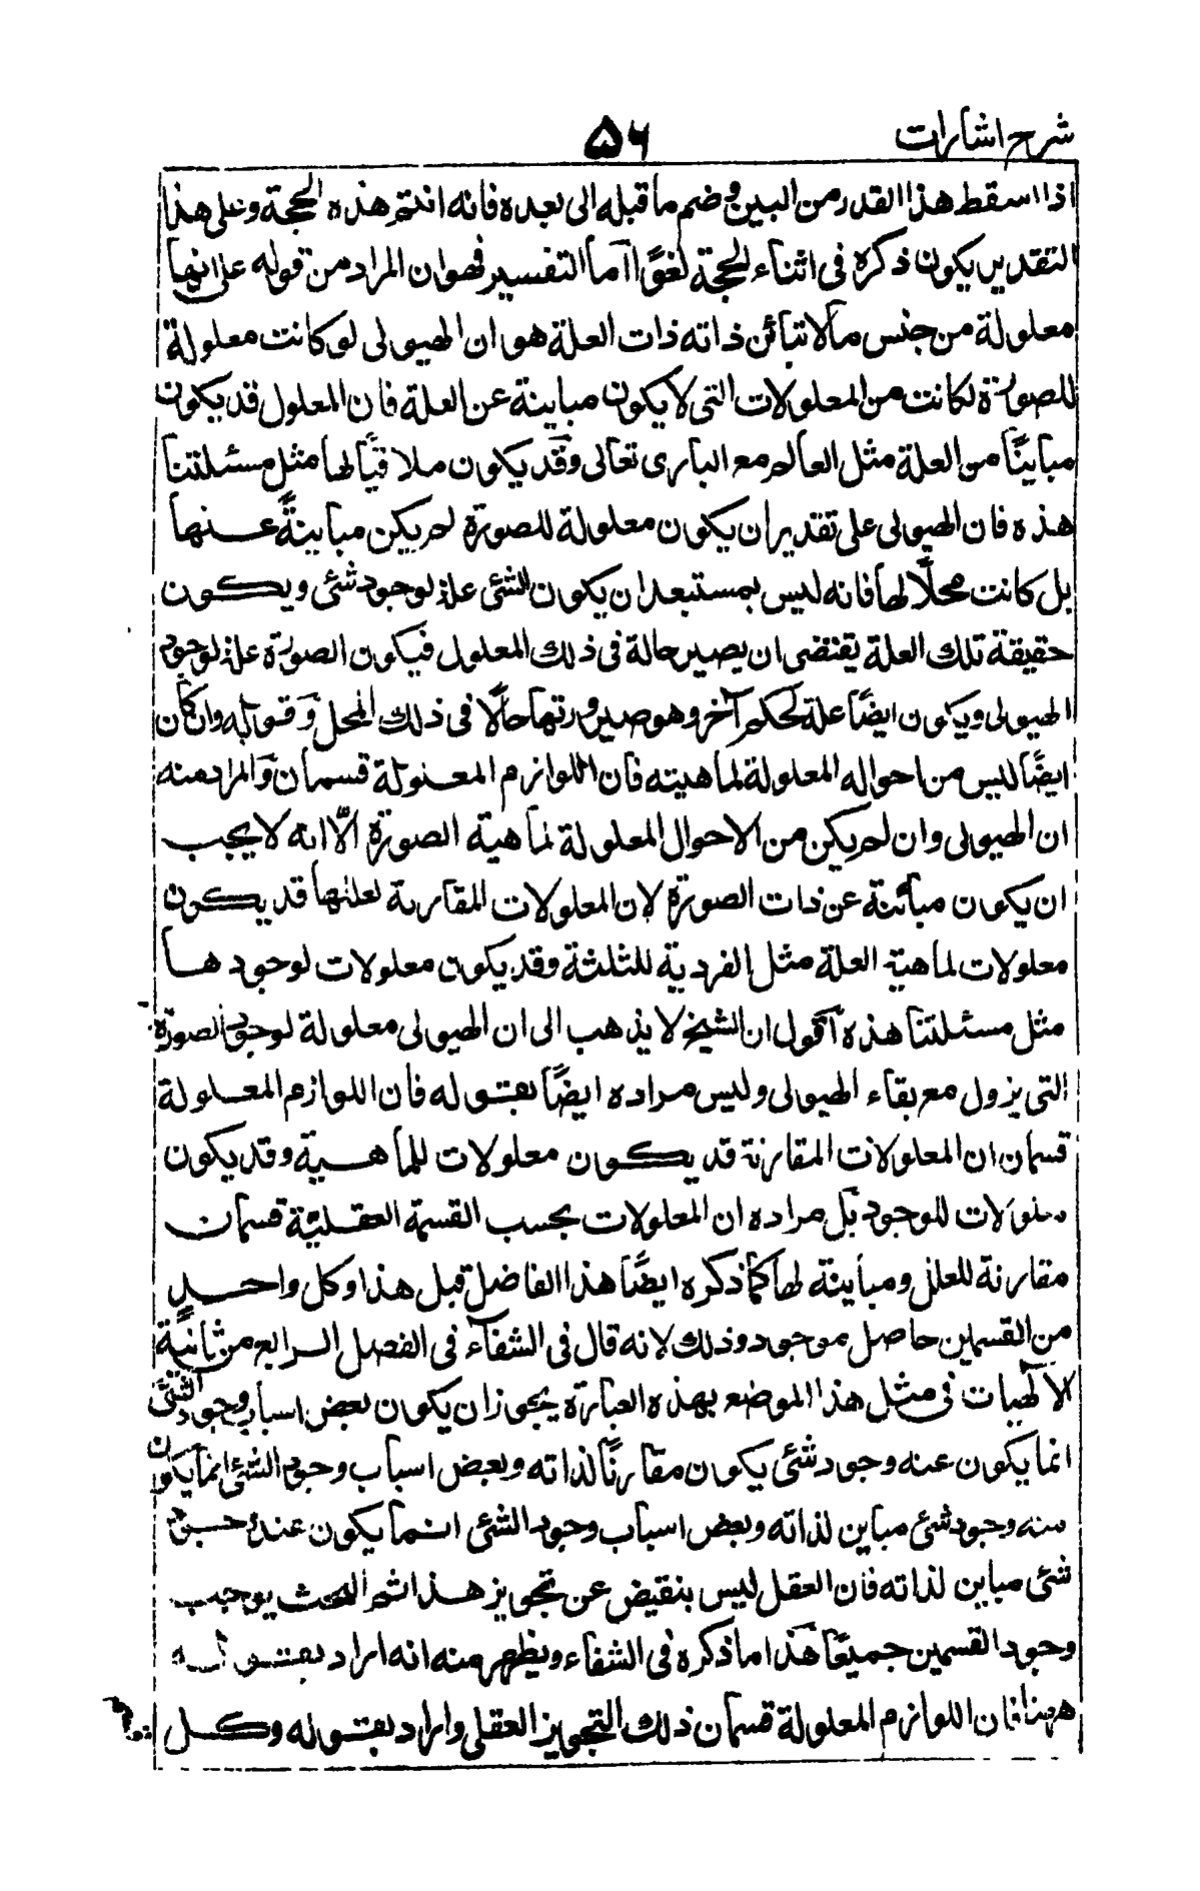 شرح اشارات
۵۶
اذا اسقط هذا القدر من البين وضم ما قبله الى بعده فانه انتم هذه الحجة وعلى هذا
التقدير يكون ذكره فى اثناء الحجة لغوًا آما التفسير فهو ان المراد من قوله على انها
معلولة من جنس ما لا تبائن ذاته ذات العلة هو ان الهيولى لو كانت معلولة
للصورة لكانت من المعلولات التى لا يكون مباينة عن العلة فان المعلول قد يكون
مباينًا من العلة مثل العالم مع البارى تعالى وقد يكون ملاقيًا لها مثل مسئلتنا
هذه فان الهيولى على تقدير ان يكون معلولة للصورة لم يكن مباينةً عنها
بل كانت محلًا لها فانه ليس بمستبعد ان يكون الشئ علة لوجود شئ ويكون
حقيقة تلك العلة يقتضى ان يصير حالة فى ذلك المعلول فيكون الصورة علة لوجود
الهيولى ويكون ايضًا علة لحكم آخر وهو صيرورتها حالًا فى ذلك المحل وقوله وان كان
ايضًا ليس من احواله المعلولة لماهيته فان اللوازم المعلولة قسمان والمراد منه
ان الهيولى وان لم يكن من الاحوال المعلولة لماهية الصورة الّا انه لا يجب
ان يكون مبائنة عن ذات الصورة لان المعلولات المقارنة لعلتها قد يكون
معلولات لماهية العلة مثل الفردية للثلثة وقد يكون معلولات لوجودها
مثل مسئلتنا هذه آقول ان الشيخ لا يذهب الى ان الهيولى معلولة لوجود الصورة
التى يزول مع بقاء الهيولى وليس مراده ايضًا بقوله فان اللوازم المعلولة
قسمان ان المعلولات المقارنة قد يكون معلولات للماهية وقد يكون
معلولات للوجود بل مراده ان المعلولات بحسب القسمة العقليّة قسمان
مقارنة للعلل ومباينة لها كما ذكره ايضًا هذا الفاضل قبل هذا وكل واحد
من القسمين حاصل موجود وذلك لانه قال فى الشفآء فى الفصل الرابع من ثانية
الآلهيات فى مثل هذا الموضع بهذه العبارة يجوز ان يكون بعض اسباب وجود الشئ
انما يكون عنه وجود شئ يكون مقارنًا لذاته وبعض اسباب وجود الشئ انما يكون
منه وجود شئ مباين لذاته وبعض اسباب وجود الشئ انما يكون عنه
شئ مباين لذاته فان العقل ليس بنقيض عن تجويز هذا ثم البحث يوجب
وجود القسمين جميعًا هذا ما ذكره فى الشفاء ويظهر منه انه اراد بقوله
ههنا فان اللوازم المعلولة قسمان ذلك التجويز العقلى واراد بقوله وكل